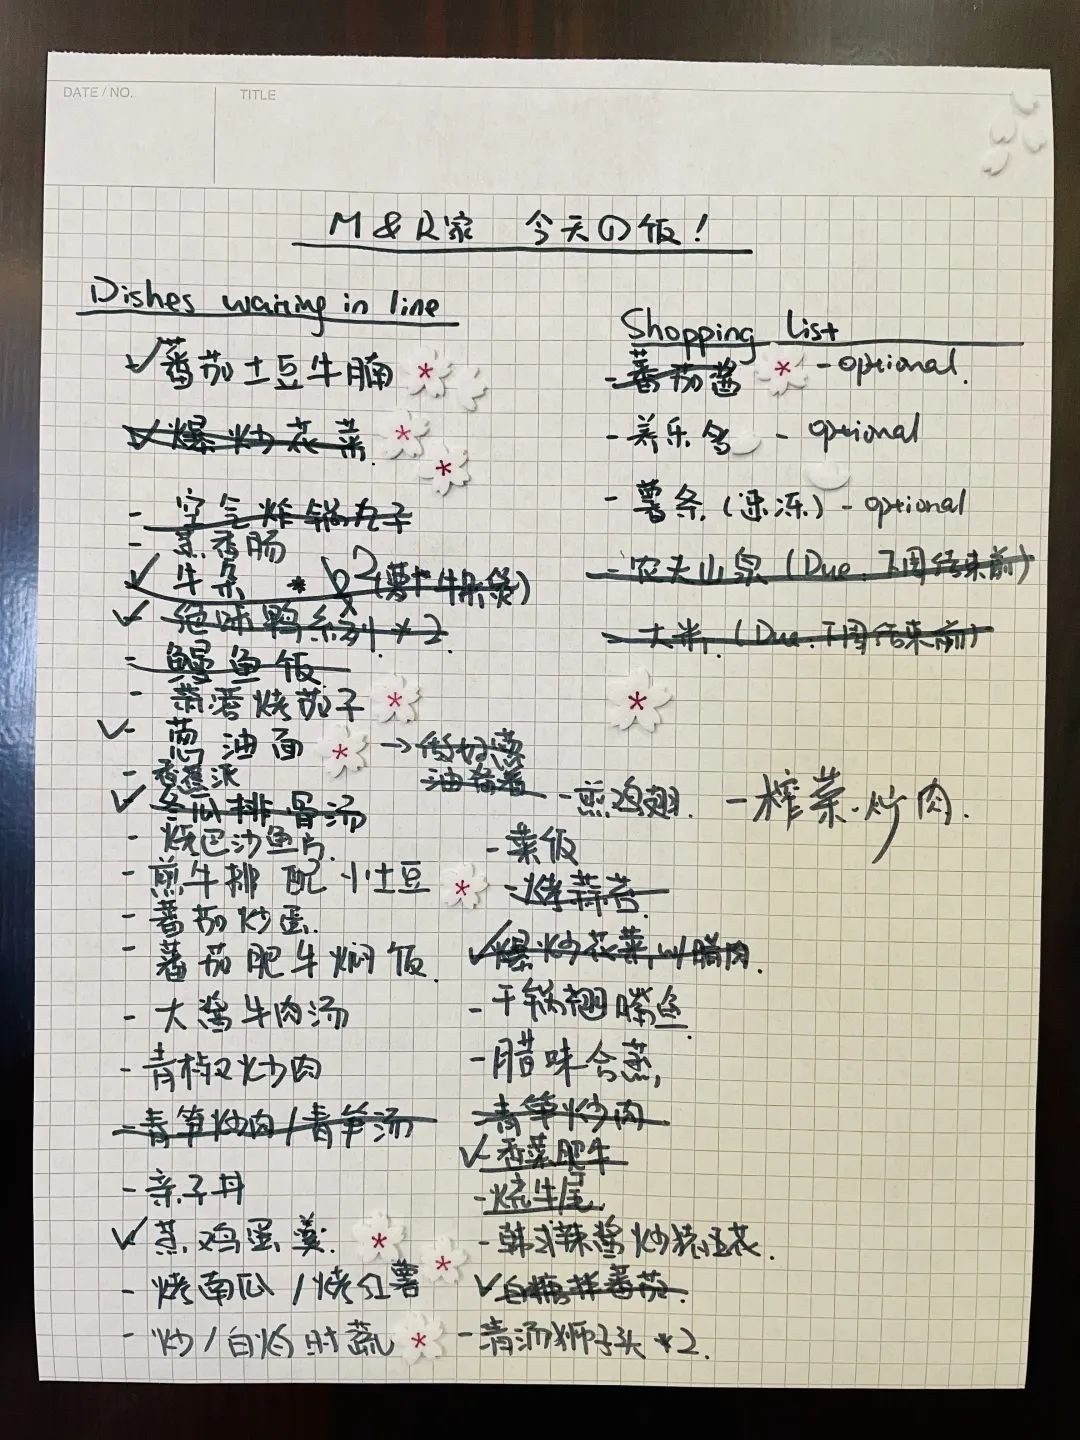 DATE / NO.
TITLE
M & R家 今天の饭!
Dishes waiting in line
✓蕃茄土豆牛腩
✓爆炒花菜
- 空气炸锅丸子
- 蒸香肠
✓牛杂 * 62(萝卜牛杂煲)
✓绝味鸭系列 * 2
- 鳗鱼饭
- 蒜蓉烤茄子
✓- 葱油面 → 做好葱
油备着
- 香蕉派
✓冬瓜排骨汤
- 烧巴沙鱼片
- 煎牛排 配小土豆
- 蕃茄炒蛋
- 蕃茄肥牛焖饭
- 大酱牛肉汤
- 青椒炒肉
- 青笋炒肉/青笋汤
- 亲子丼
✓蒸鸡蛋羹
- 烤南瓜/烤红薯
- 炒/白灼时蔬
Shopping List
- 蕃茄酱 - optional.
- 养乐多 - optional
- 薯条(速冻) - optional
- 农夫山泉 (Due: 下周结束前)
- 大米 (Due: 下周结束前)
- 煎鸡翅
- 榨菜炒肉.
- 菜饭
- 烤蒜苔
✓爆炒花菜 w/ 腊肉
- 干锅翘嘴鱼
- 腊味合蒸
- 青笋炒肉
✓- 香菜肥牛
- 烧牛尾
- 韩式辣酱炒猪五花.
✓白糖拌蕃茄
- 清汤狮子头 * 2.